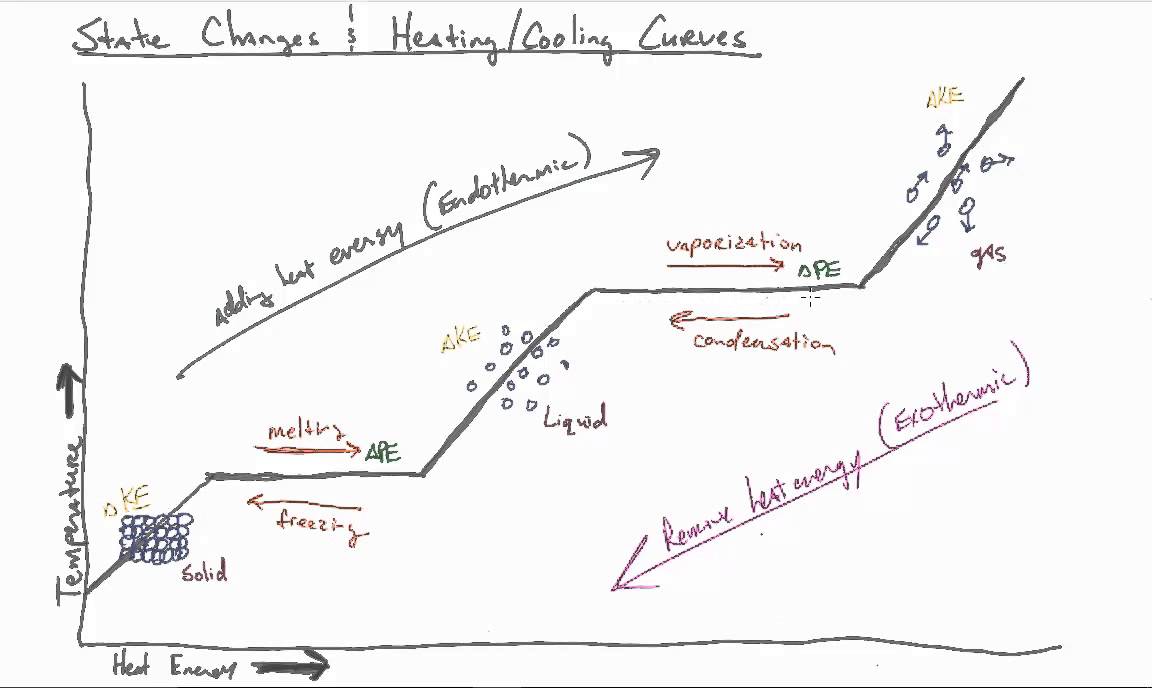 State Changes & Heating/Cooling Curves
ΔKE
Adding heat energy (Endothermic)
vaporization
ΔPE
gas
condensation
ΔKE
Liquid
(Exothermic)
Remove heat energy
melting
ΔPE
freezing
ΔKE
Solid
Temperature
Heat Energy